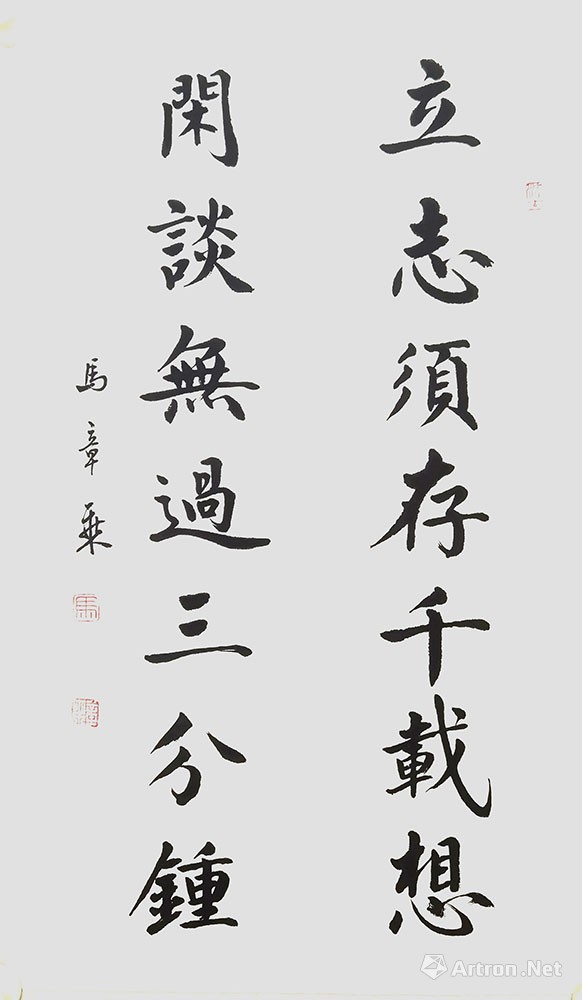 立志須存千載想
閑談無過三分鍾
馬章乘
Artron.Net